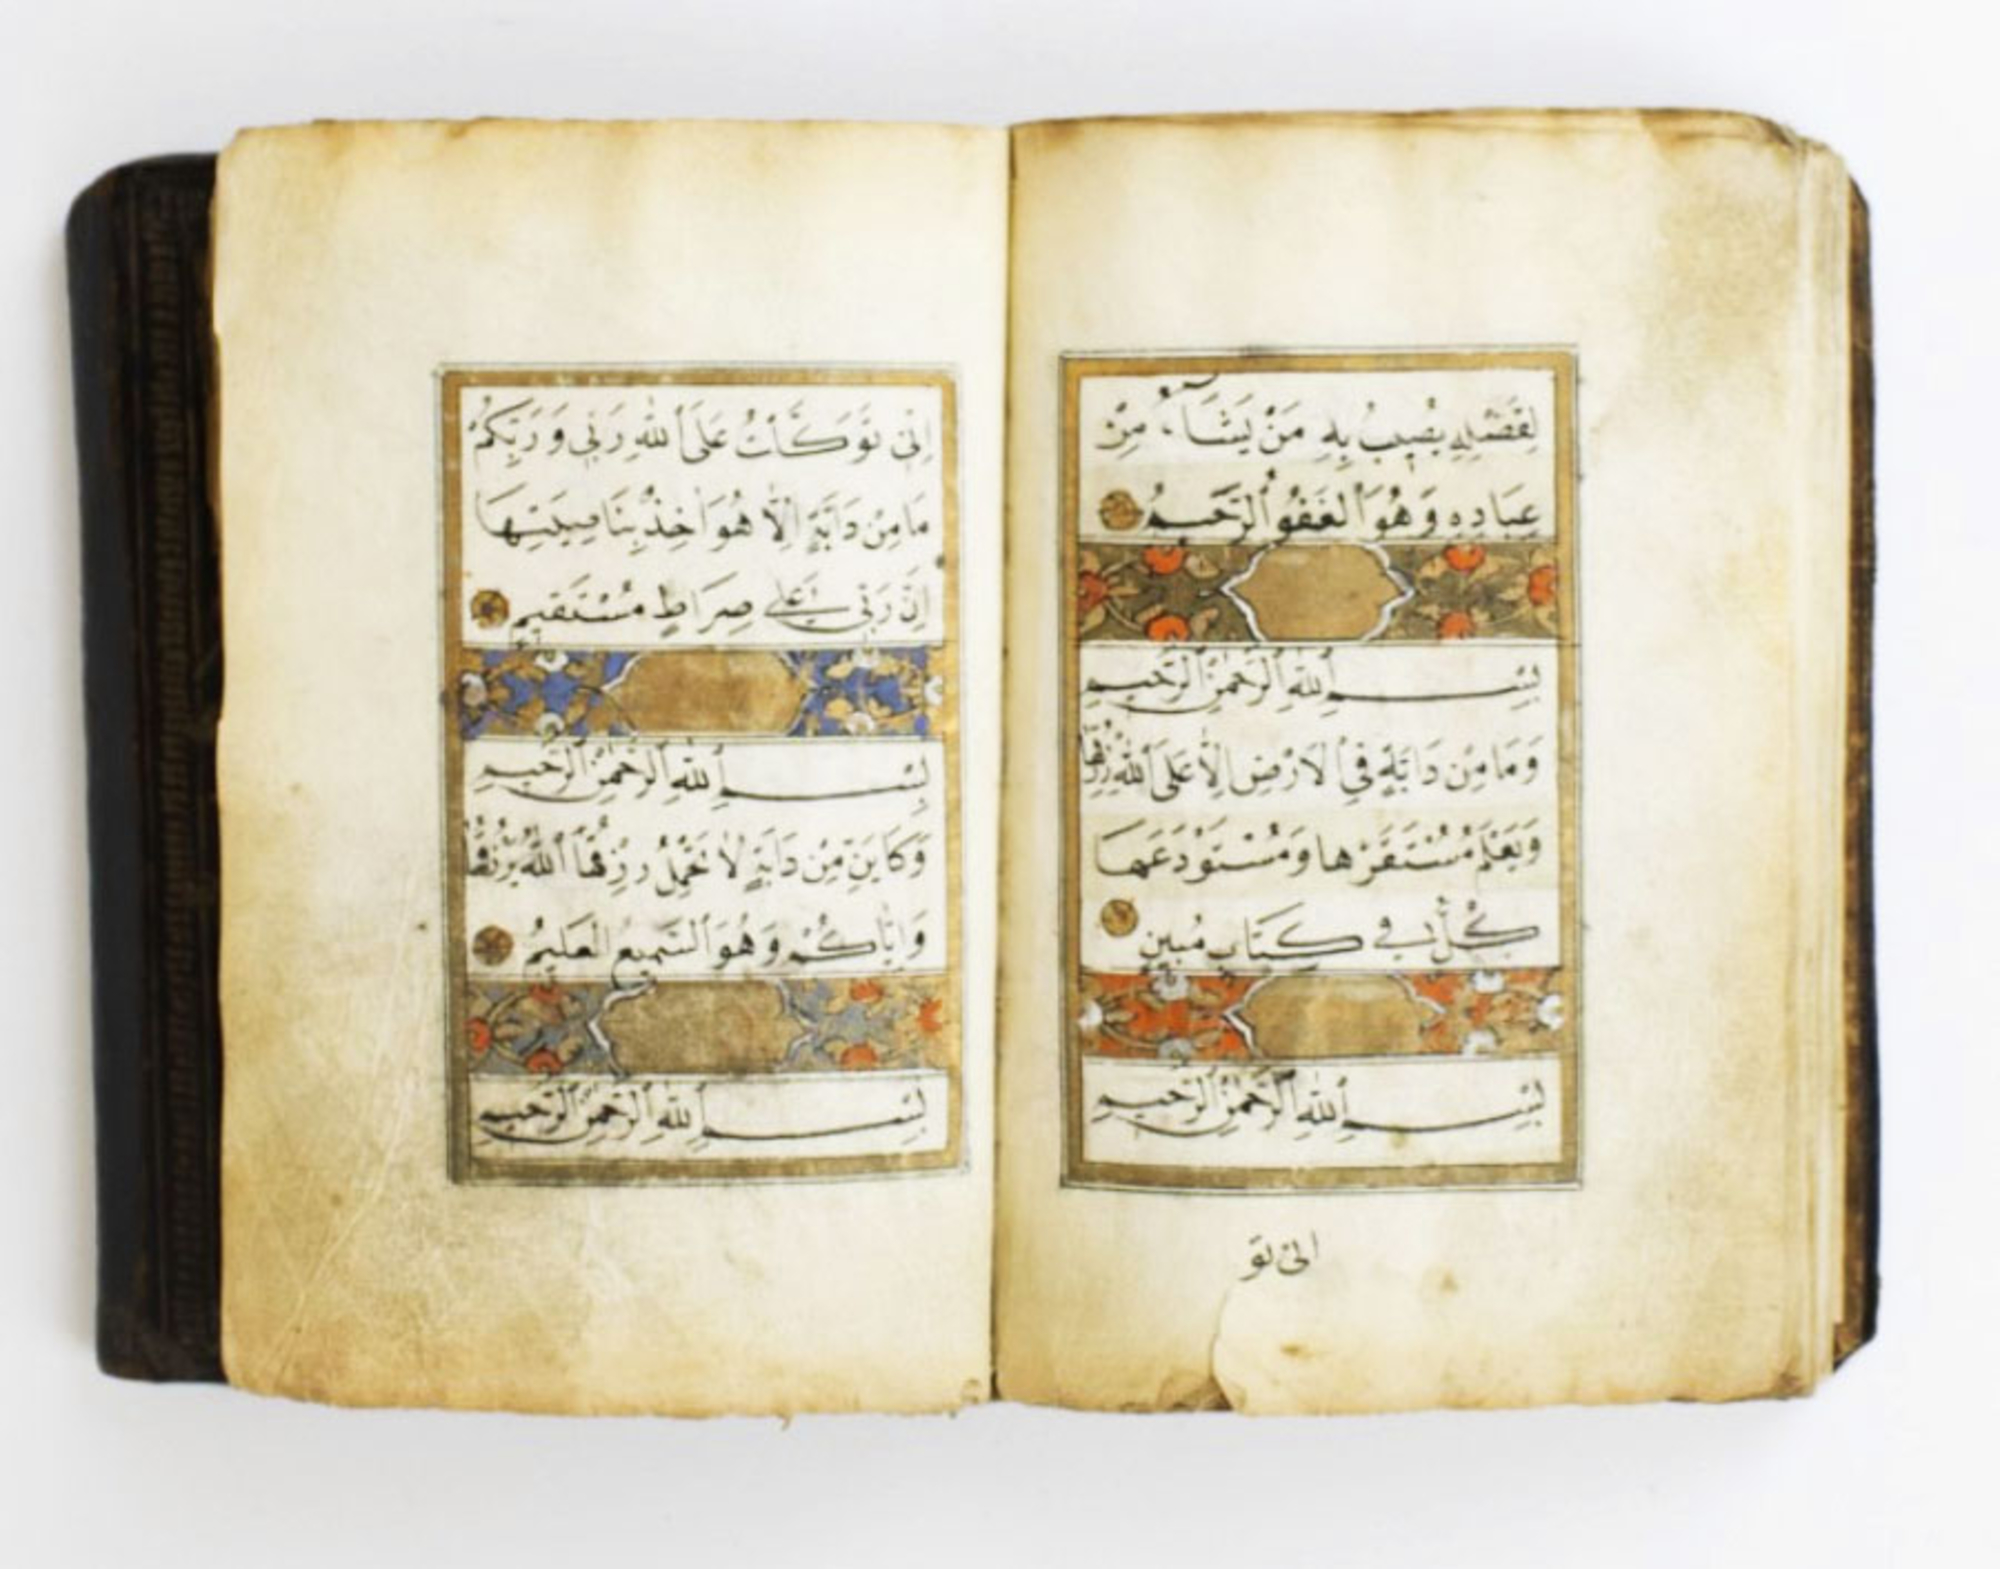 لِفَضْلِهِ يُصِيبُ بِهِ مَنْ يَشَاءُ مِنْ
عِبَادِهِ وَهُوَ الْغَفُورُ الرَّحِيمُ
بِسْمِ اللَّهِ الرَّحْمٰنِ الرَّحِيمِ
وَمَا مِنْ دَابَّةٍ فِي الْاَرْضِ اِلَّا عَلَى اللَّهِ رِزْقُهَا
وَيَعْلَمُ مُسْتَقَرَّهَا وَمُسْتَوْدَعَهَا
كُلٌّ فِي كِتَابٍ مُبِينٍ
بِسْمِ اللَّهِ الرَّحْمٰنِ الرَّحِيمِ
انى تو
اِنِّي تَوَكَّلْتُ عَلَى اللَّهِ رَبِّي وَرَبِّكُمْ
مَا مِنْ دَابَّةٍ اِلَّا هُوَ اٰخِذٌ بِنَاصِيَتِهَا
اِنَّ رَبِّي عَلٰى صِرَاطٍ مُسْتَقِيمٍ
بِسْمِ اللَّهِ الرَّحْمٰنِ الرَّحِيمِ
وَكَاَيِّنْ مِنْ دَابَّةٍ لَا تَحْمِلُ رِزْقَهَا اللَّهُ يَرْزُقُهَا
وَاِيَّاكُمْ وَهُوَ السَّمِيعُ الْعَلِيمُ
بِسْمِ اللَّهِ الرَّحْمٰنِ الرَّحِيمِ